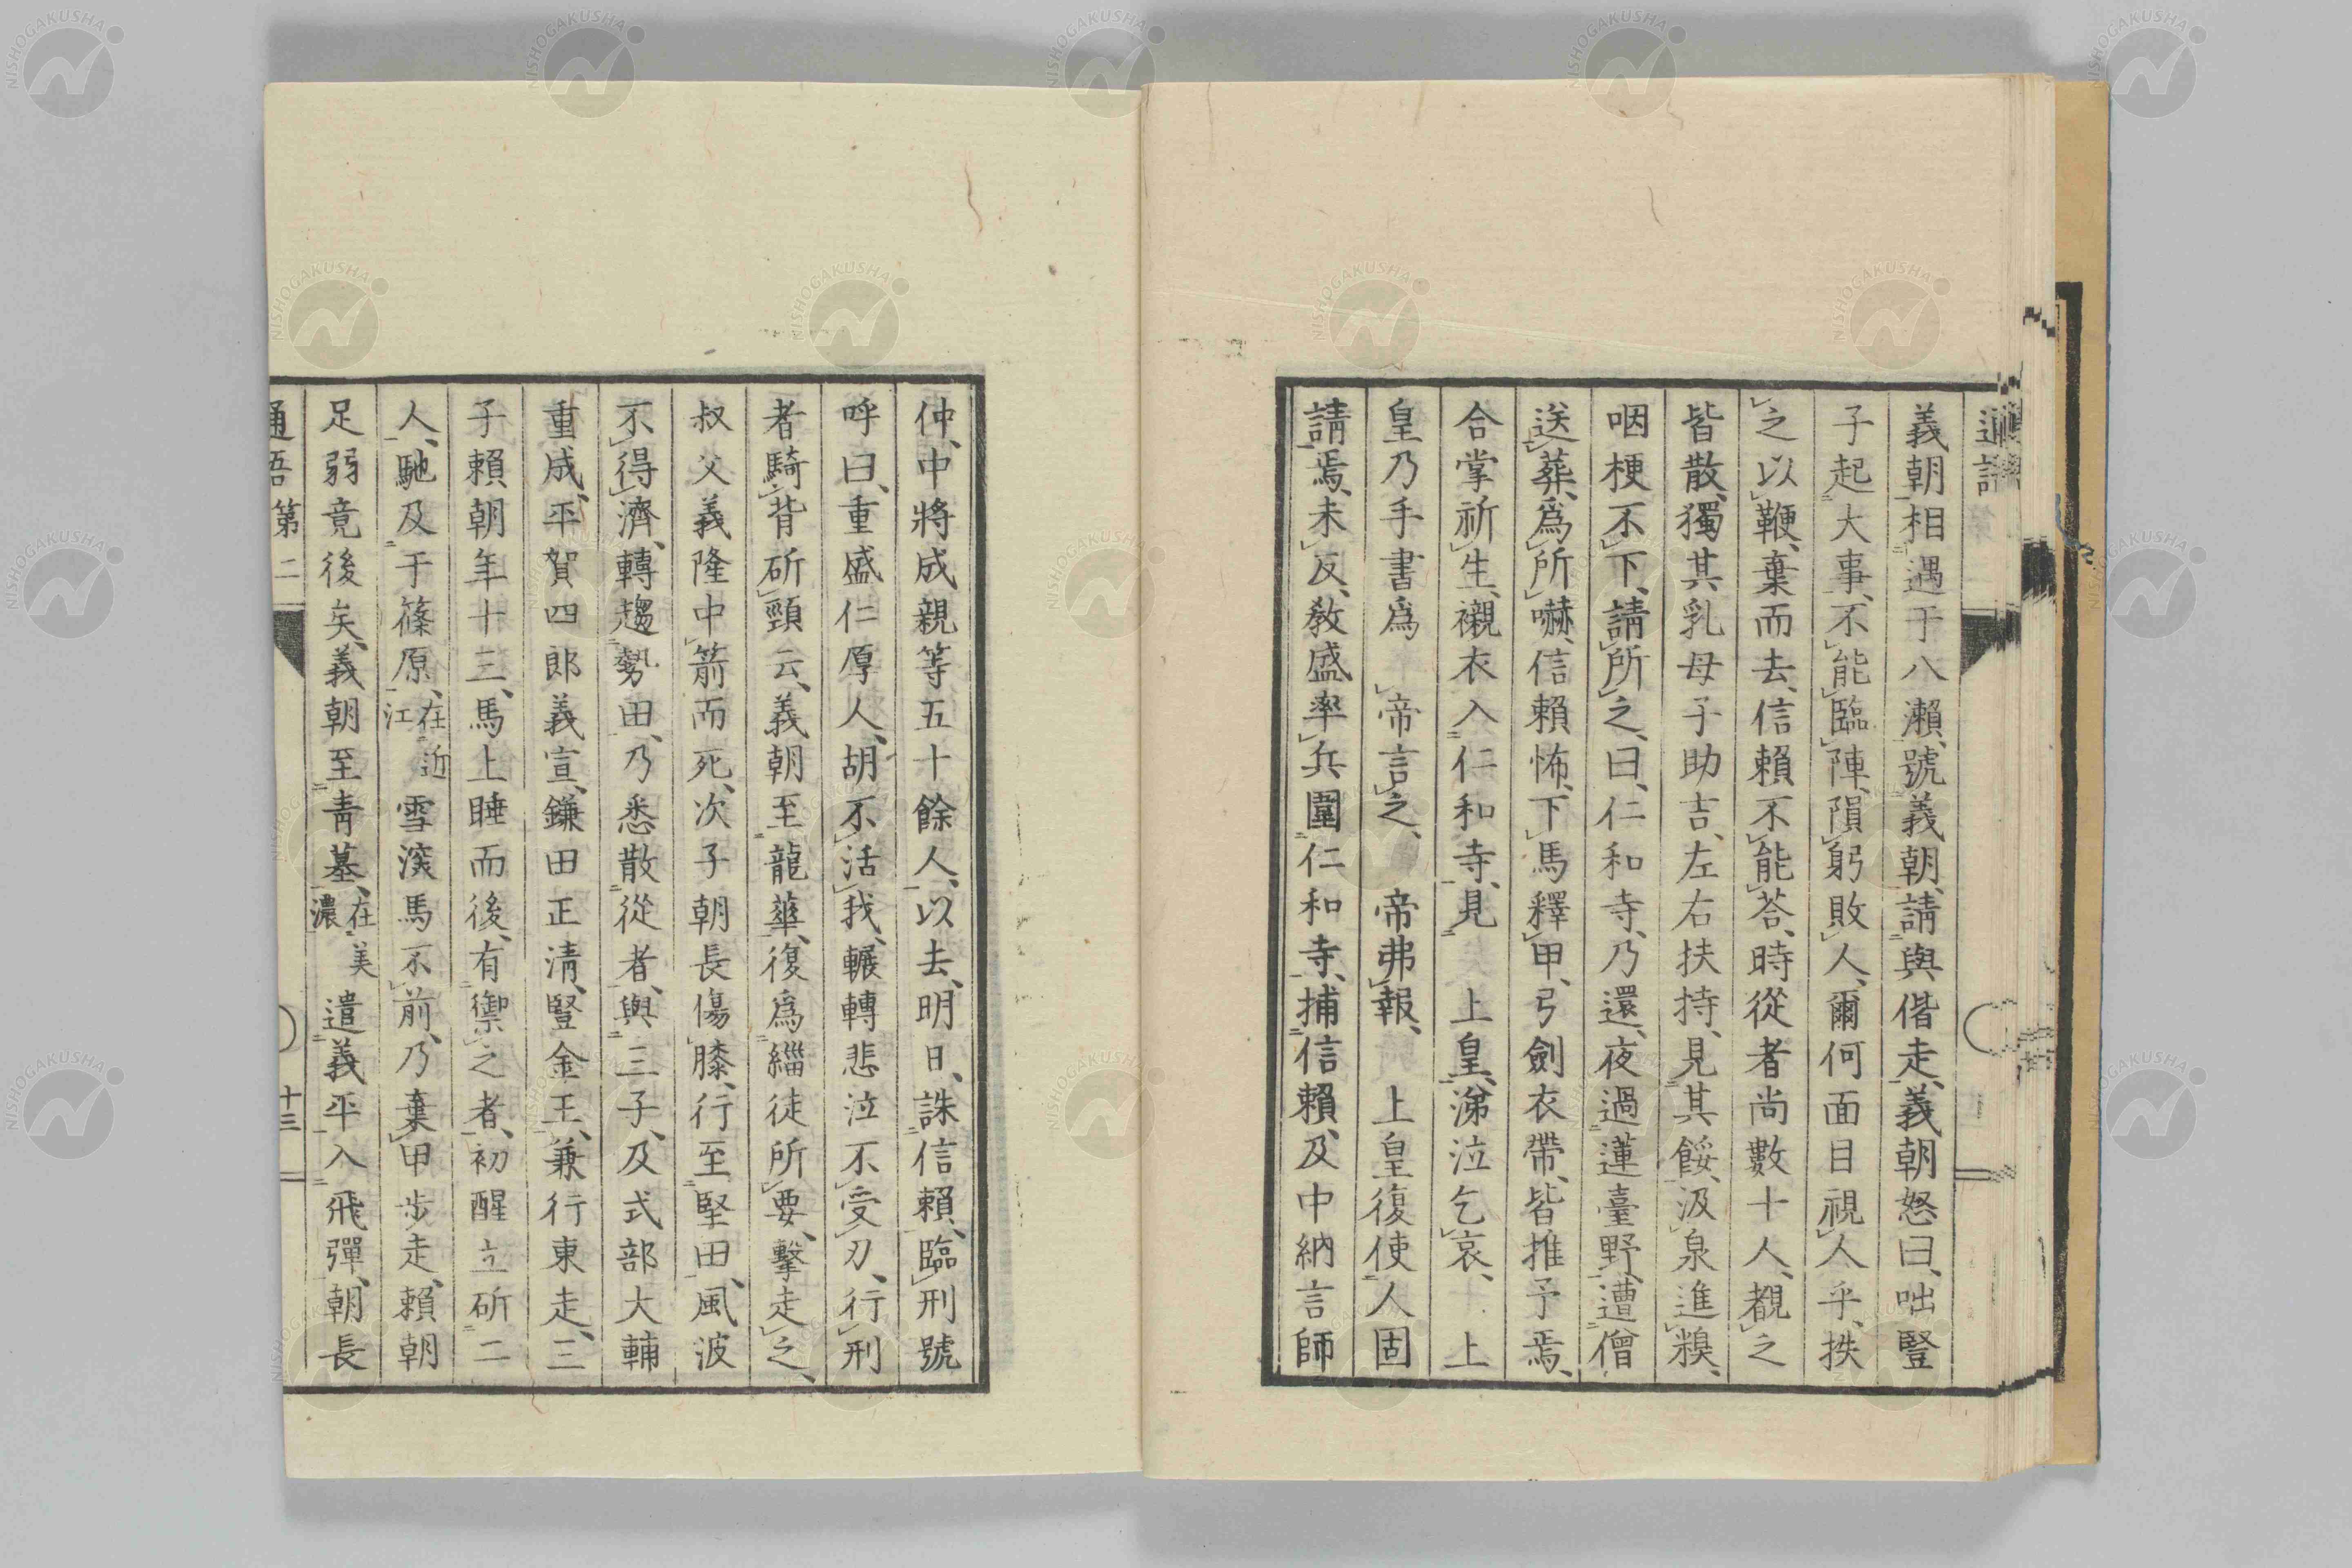 義朝相遇于八瀨、號義朝、請與偕走、義朝怒曰、咄豎
子起大事、不能臨陣、隕躬敗人、爾何面目視人乎、抶
之以鞭、棄而去、信賴不能荅、時從者尚數十人、覩之
皆散、獨其乳母子助吉、左右扶持、見其餒、汲泉進糗、
咽梗不下、請所之、曰、仁和寺、乃還、夜過蓮臺野、遭僧
送葬、爲所嚇、信賴怖、下馬釋甲、弓劍衣帶、皆推予焉、
合掌祈生、襯衣入仁和寺、見 上皇、涕泣乞哀、上
皇乃手書爲 帝言之、 帝弗報、 上皇復使人固
請焉、未反、敎盛率兵圍仁和寺、捕信賴、及中納言師
仲、中將成親等五十餘人、以去、明日、誅信賴、臨刑號
呼曰、重盛仁厚人、胡不活我、輾轉悲泣不受刃、行刑
者騎背斫頸云、義朝至龍華、復爲緇徒所要、擊走之、
叔父義隆中箭而死、次子朝長傷膝、行至堅田、風波
不得濟、轉趨勢田、乃悉散從者、與三子、及式部大輔
重成、平賀四郎義宣、鎌田正清、豎金王、兼行東走、三
子賴朝年十三、馬上睡而後、有禦之者、初醒立斫二
人、馳及于篠原、在近江 雪深馬不前、乃棄甲步走、賴朝
足弱竟後矣、義朝至青墓、在美濃 遣義平入飛彈、朝長
通語第二 十三